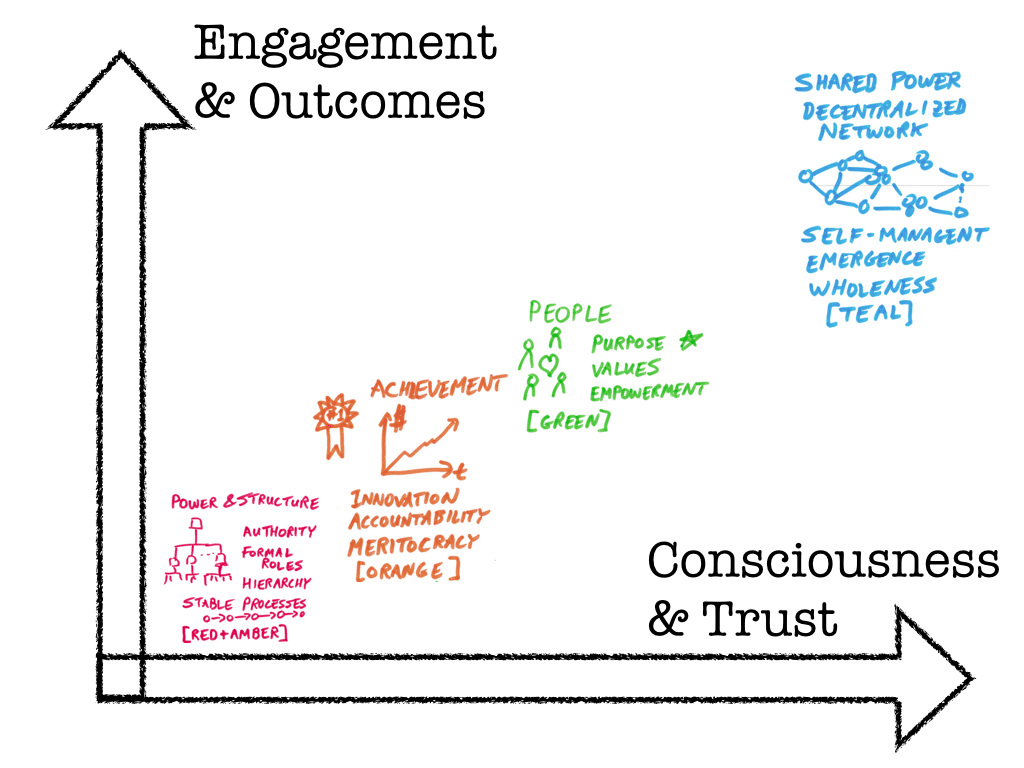 Engagement
& Outcomes
SHARED POWER
DECENTRALIZED
NETWORK
SELF-MANAGENT
EMERGENCE
WHOLENESS
[TEAL]
PEOPLE
PURPOSE
VALUES
EMPOWERMENT
[GREEN]
ACHIEVEMENT
#1
$
t
INNOVATION
ACCOUNTABILITY
MERITOCRACY
[ORANGE]
POWER & STRUCTURE
AUTHORITY
FORMAL
ROLES
HIERARCHY
STABLE PROCESSES
[RED+AMBER]
Consciousness
& Trust